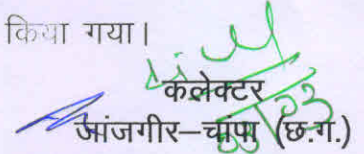 किया गया।
कलेक्टर
जांजगीर–चांपा (छ.ग.)